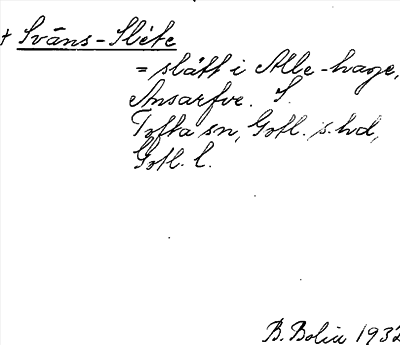 + Sväns-Släte
= slätt i Alle-hage,
Ansarfve. S.
Tofta sn, Gotl. s. hd,
Gotl. l.
B. Bolin 1932